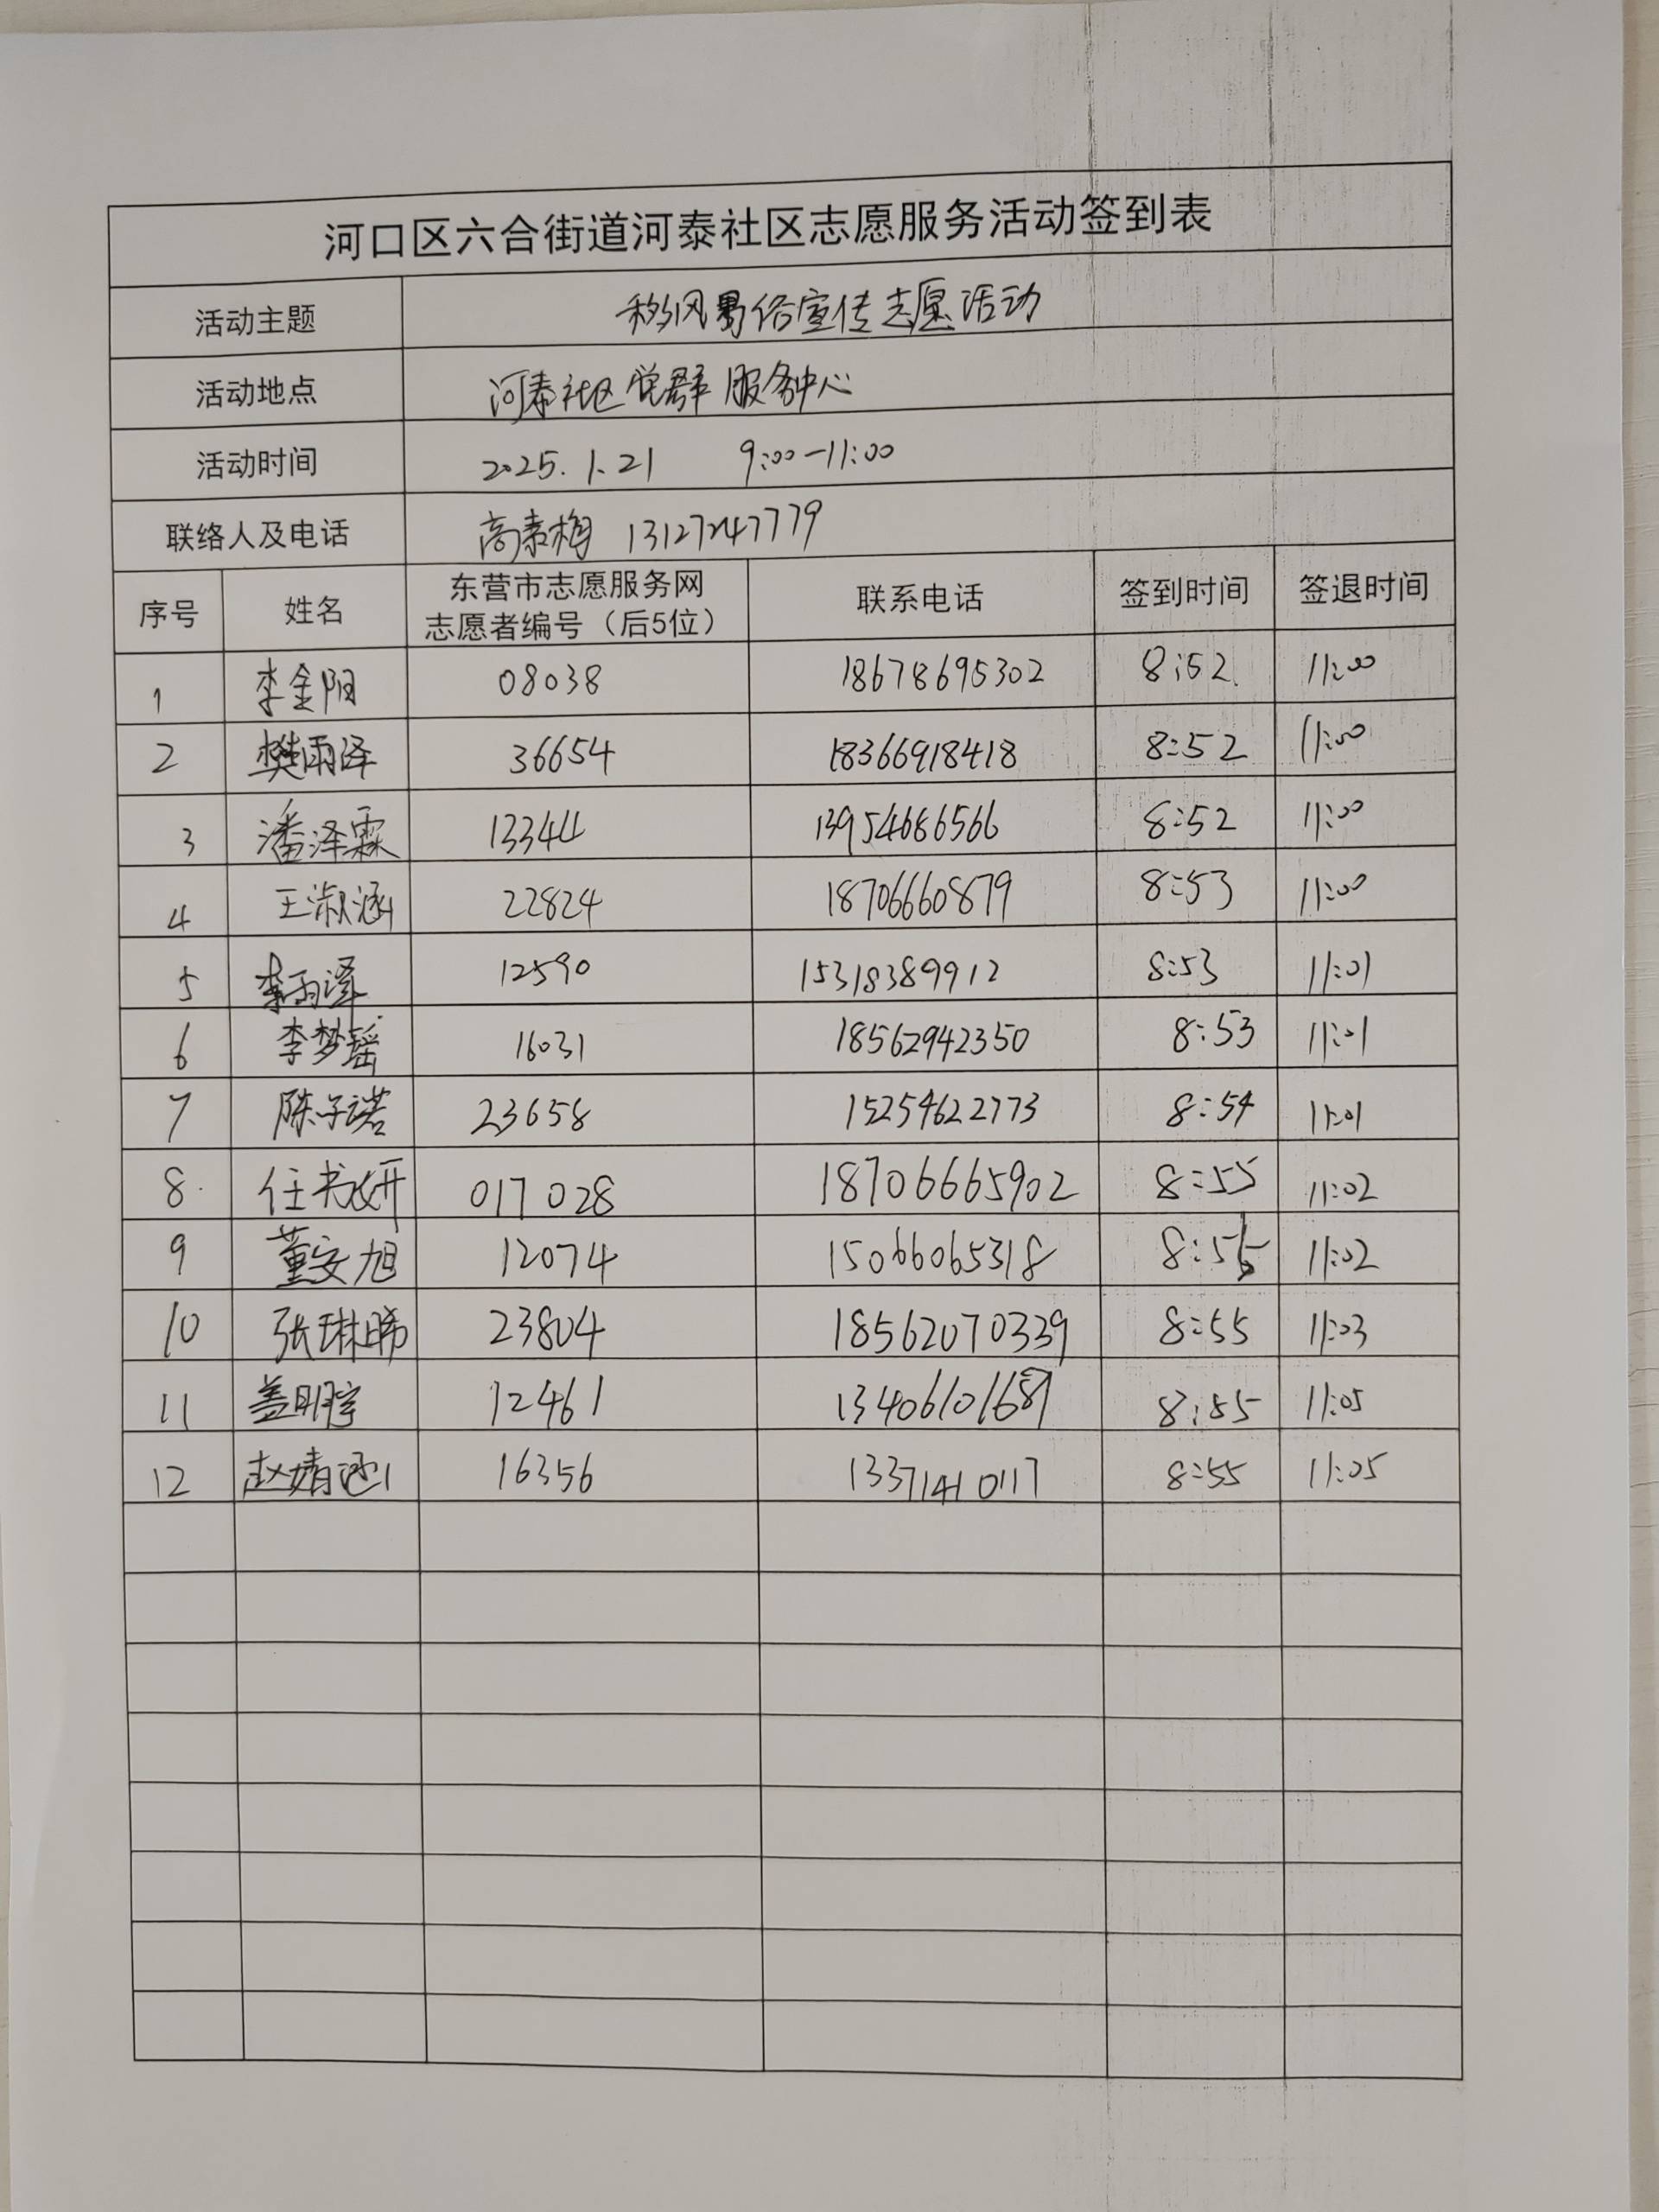 河口区六合街道河泰社区志愿服务活动签到表
活动主题 移风易俗宣传志愿活动
活动地点 河泰社区党群服务中心
活动时间 2025.1.21 9:00-11:00
联络人及电话 高素梅 13127247779
序号 姓名 东营市志愿服务网 志愿者编号（后5位） 联系电话 签到时间 签退时间
1 李金阳 08038 18678695302 8:52 11:00
2 樊雨泽 36654 18366918418 8:52 11:00
3 潘泽霖 13344 13954686566 8:52 11:00
4 王淑涵 22824 18706660879 8:53 11:00
5 李雨泽 12590 15318389912 8:53 11:01
6 李梦瑶 16031 18562942350 8:53 11:01
7 陈子诺 23658 15254622773 8:54 11:01
8 任书妍 017028 18706665902 8:55 11:02
9 董安旭 12074 15066065318 8:55 11:02
10 张琳晞 23804 18562070339 8:55 11:03
11 盖明宇 12461 8:55 11:05
12 赵婧涵 16356 13371410117 8:55 11:05